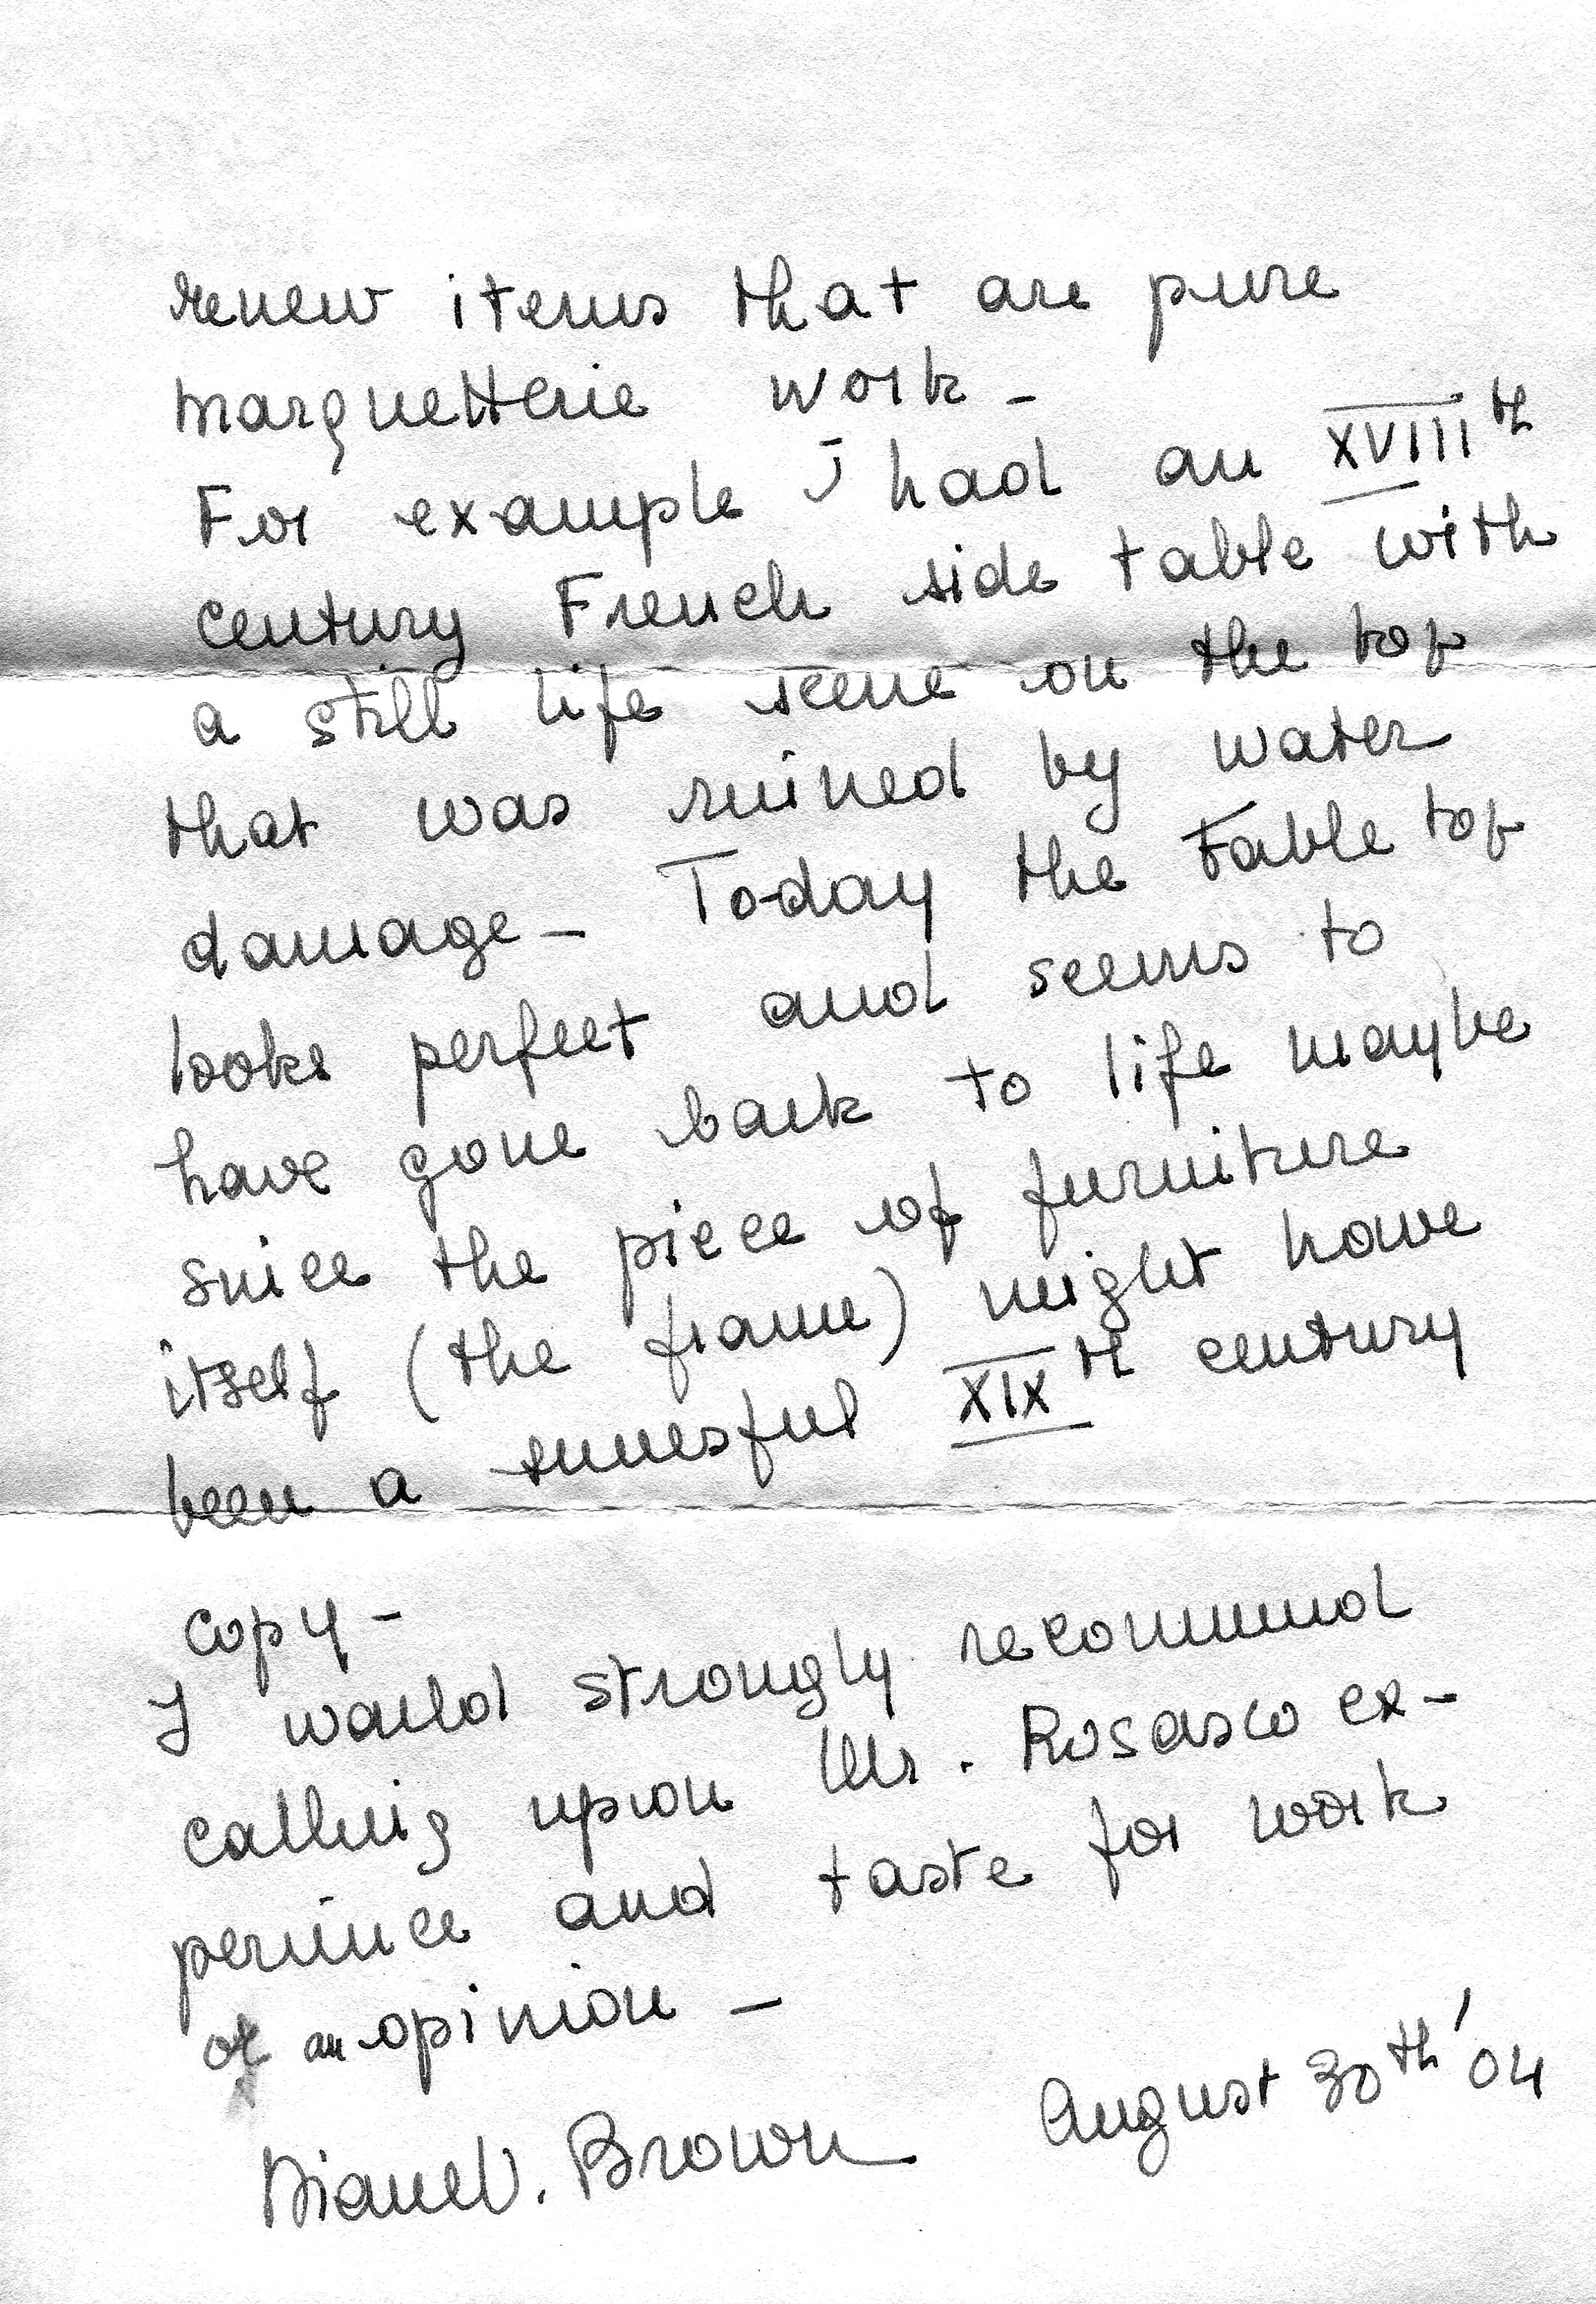 renew items that are pure
marquetterie work -
For example I had an XVIIIth
century French side table with
a still life scene on the top
that was ruined by water
damage - To-day the table top
looks perfect and seems to
have gone back to life maybe
since the piece of furniture
itself (the frame) might have
been a succesful XIXth century
copy -
I would strongly recommend
calling upon Mr. Rosasco ex-
perience and taste for work
of an opinion -
August 30th '04
Diane V. Brown